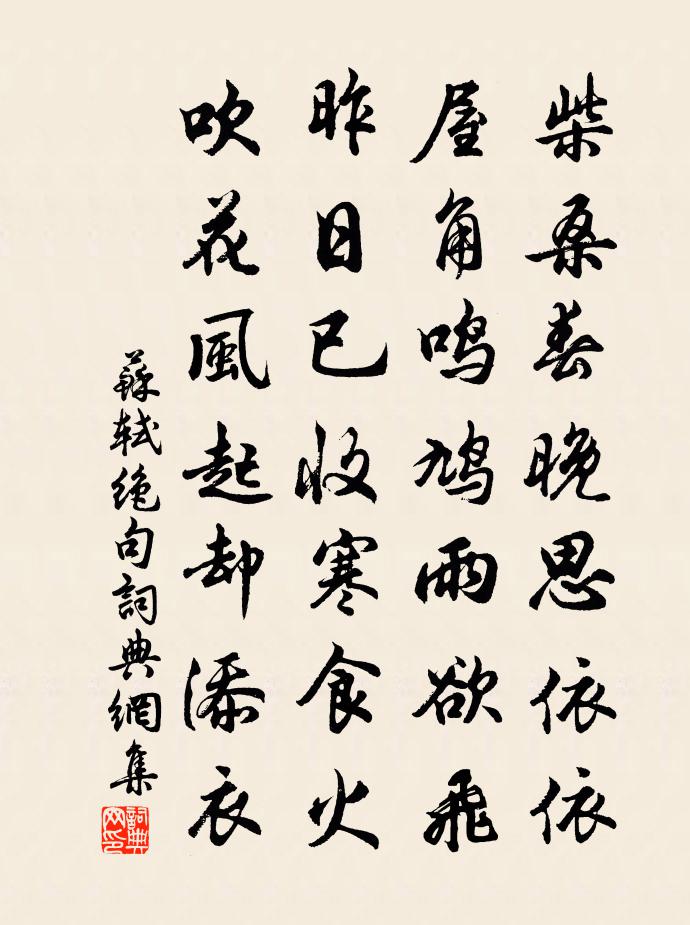 柴桑春晚思依依
屋角鸣鸠雨欲飛
昨日已收寒食火
吹花風起却添衣
蘇軾绝句詞典網集
詞典
网印